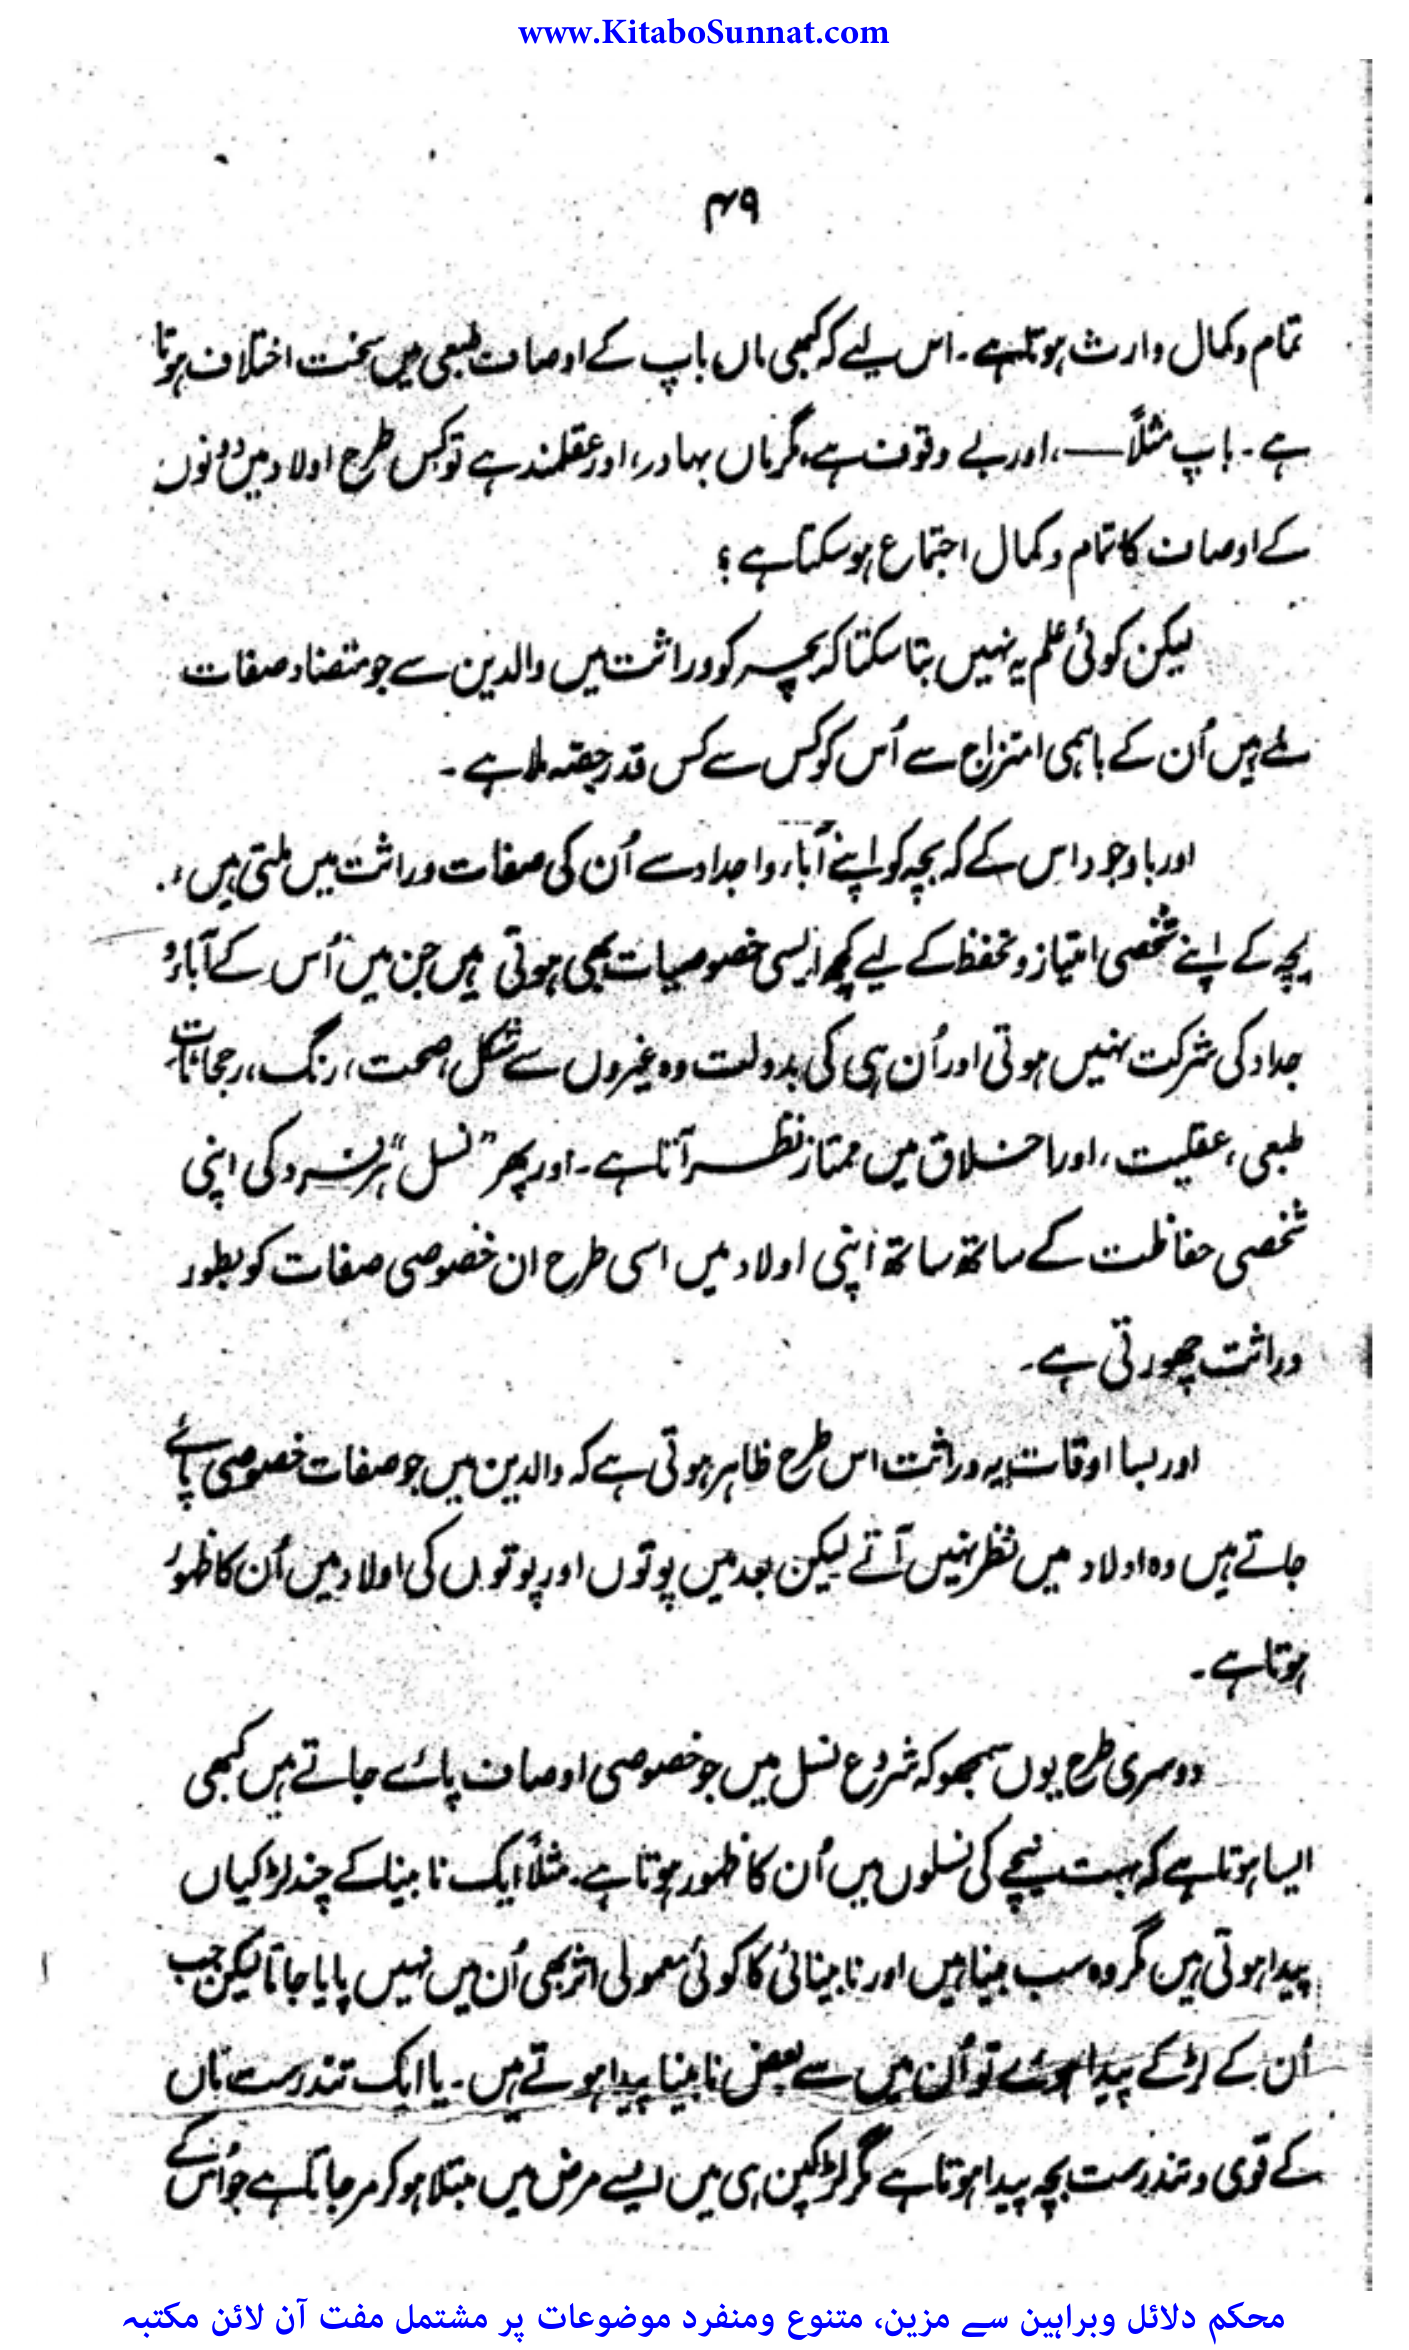 www.KitaboSunnat.com
۴۹
تمام وکمال وارث ہوتا ہے۔ اس لیے کہ کبھی ماں باپ کے اوصاف طبعی میں سخت اختلاف ہوتا
ہے۔ باپ مثلاً ——، اور بے وقوف ہے، مگر ماں بہادر، اور عقلمند ہے تو کس طرح اولاد میں دونوں
کے اوصاف کا تمام وکمال اجتماع ہوسکتا ہے؟
لیکن کوئی علم یہ نہیں بتا سکتا کہ بچہ کو وراثت میں والدین سے جو متضاد صفات
ملے ہیں اُن کے باہمی امتزاج سے اُس کو کس سے کس قدر حصّہ ملا ہے۔
اور باوجود اس کے کہ بچہ کو اپنے آباء واجداد سے اُن کی صفات وراثت میں ملتی ہیں،
بچہ کے اپنے شخصی امتیاز و تحفظ کے لیے کچھ ایسی خصوصیات بھی ہوتی ہیں جن میں اُس کے آباء و
جداد کی شرکت نہیں ہوتی اور اُن ہی کی بدولت وہ غیروں سے شکل، صحت، رنگ، رحجانات
طبعی، عقلیت، اور اخلاق میں ممتاز نظر آتا ہے۔ اور پھر ”نسل“ ہر فرد کی اپنی
شخصی حفاظت کے ساتھ ساتھ اپنی اولاد میں اسی طرح ان خصوصی صفات کو بطور
وراثت چھوڑتی ہے۔
اور بسا اوقات یہ وراثت اس طرح ظاہر ہوتی ہے کہ والدین میں جو صفات خصوصی پائے
جاتے ہیں وہ اولاد میں نظر نہیں آتے لیکن بعد میں پوتوں اور پوتوں کی اولاد میں اُن کا ظہور
ہوتا ہے۔
دوسری طرح یوں سمجھو کہ شروع نسل میں جو خصوصی اوصاف پائے جاتے ہیں کبھی
ایسا ہوتا ہے کہ بہت نیچے کی نسلوں میں اُن کا ظہور ہوتا ہے۔ مثلاً ایک نابینا کے چند لڑکیاں
پیدا ہوتی ہیں مگر وہ سب بینا ہیں اور نابینائی کا کوئی معمولی اثر بھی اُن میں نہیں پایا جاتا لیکن جب
اُن کے لڑکے پیدا ہوئے تو اُن میں سے بعض نابینا پیدا ہوتے ہیں۔ یا ایک تندرست ماں
کے قوی و تندرست بچہ پیدا ہوتا ہے مگر لڑکپن ہی میں ایسے مرض میں مبتلا ہوکر مرجاتا ہے جو اُس کے
محکم دلائل وبراہین سے مزین، متنوع ومنفرد موضوعات پر مشتمل مفت آن لائن مکتبہ